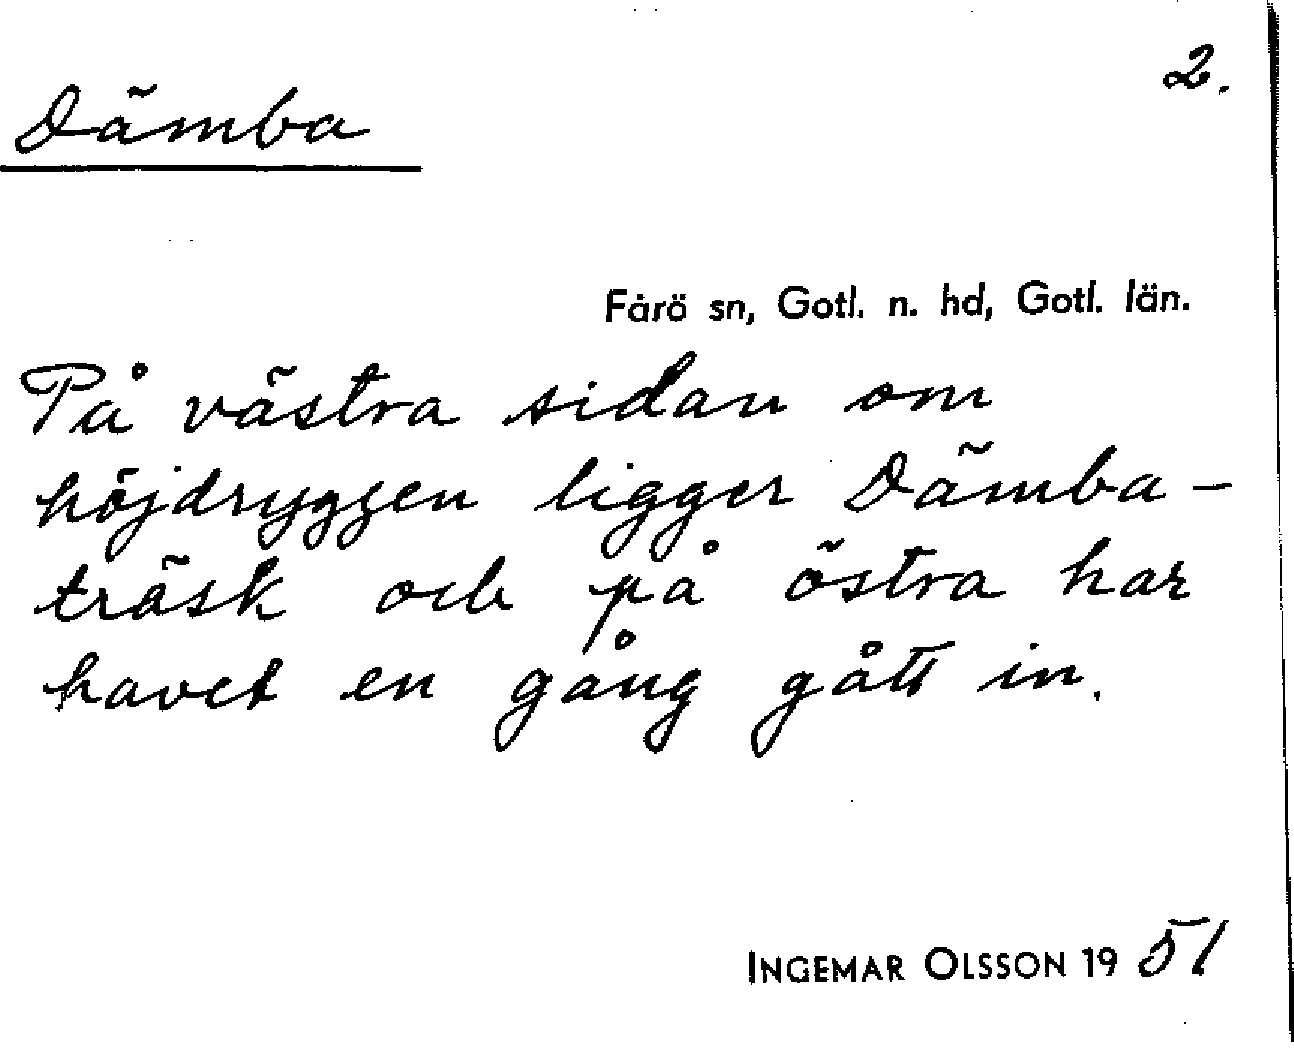 2.
Dämba
Fårö sn, Gotl. n. hd, Gotl. län.
På västra sidan om
höjdryggen ligger Dämba-
träsk och på östra har
havet en gång gått in.
INGEMAR OLSSON 1951